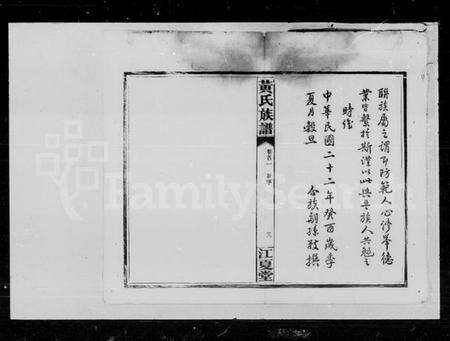 聯族屬之謂耶防範人心修舉德
業皆繫於斯謹以此與吾族人共勉之
時維
中華民國二十二年癸酉歲季
夏月穀旦
合族嗣孫敬撰
黃氏族譜
卷首一
新序
江夏堂
FamilySearch